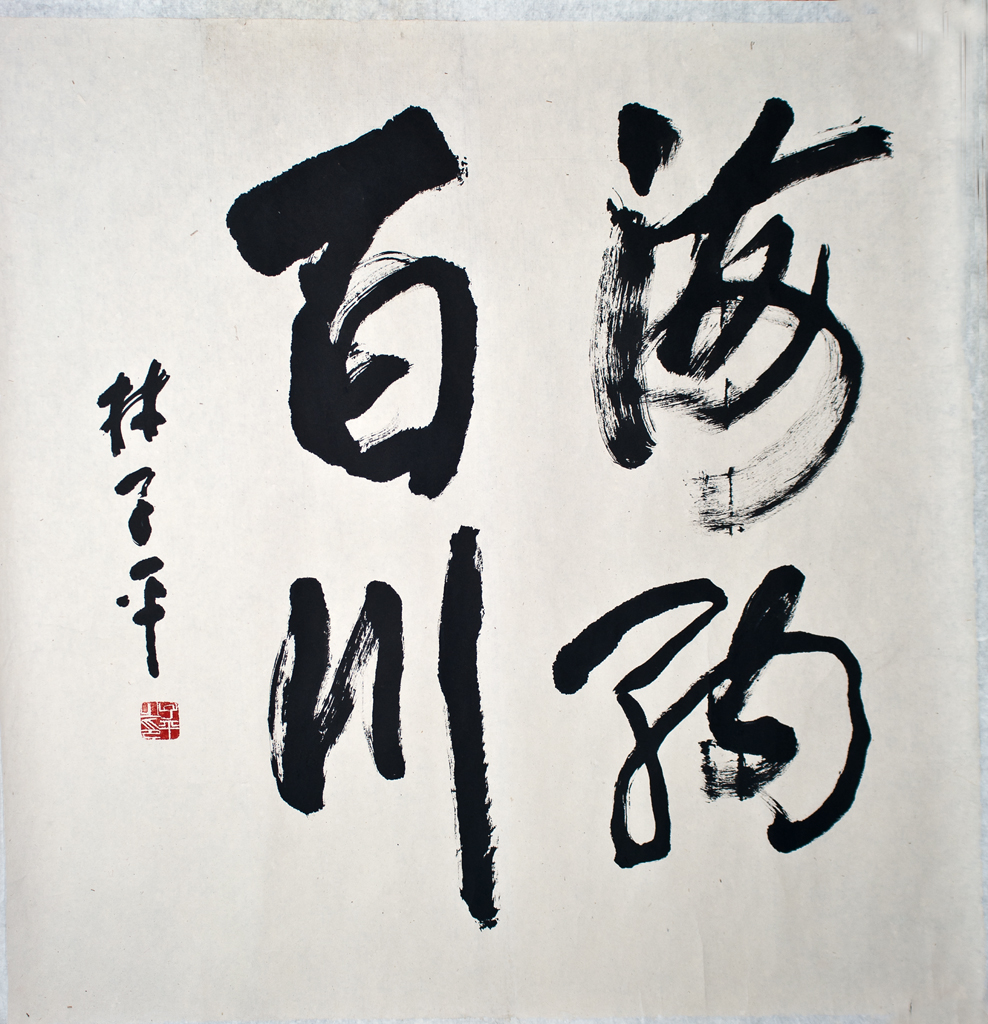 海納
百川
林子平